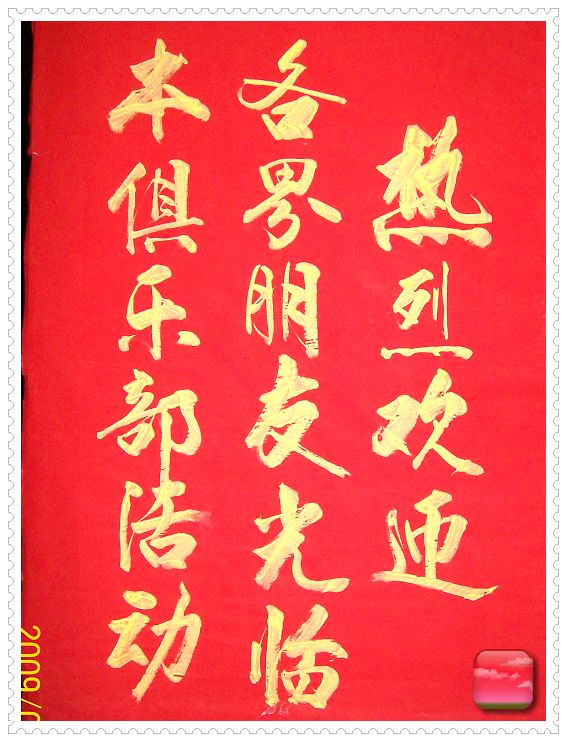 热烈欢迎
各界朋友光临
本俱乐部活动
2009/0